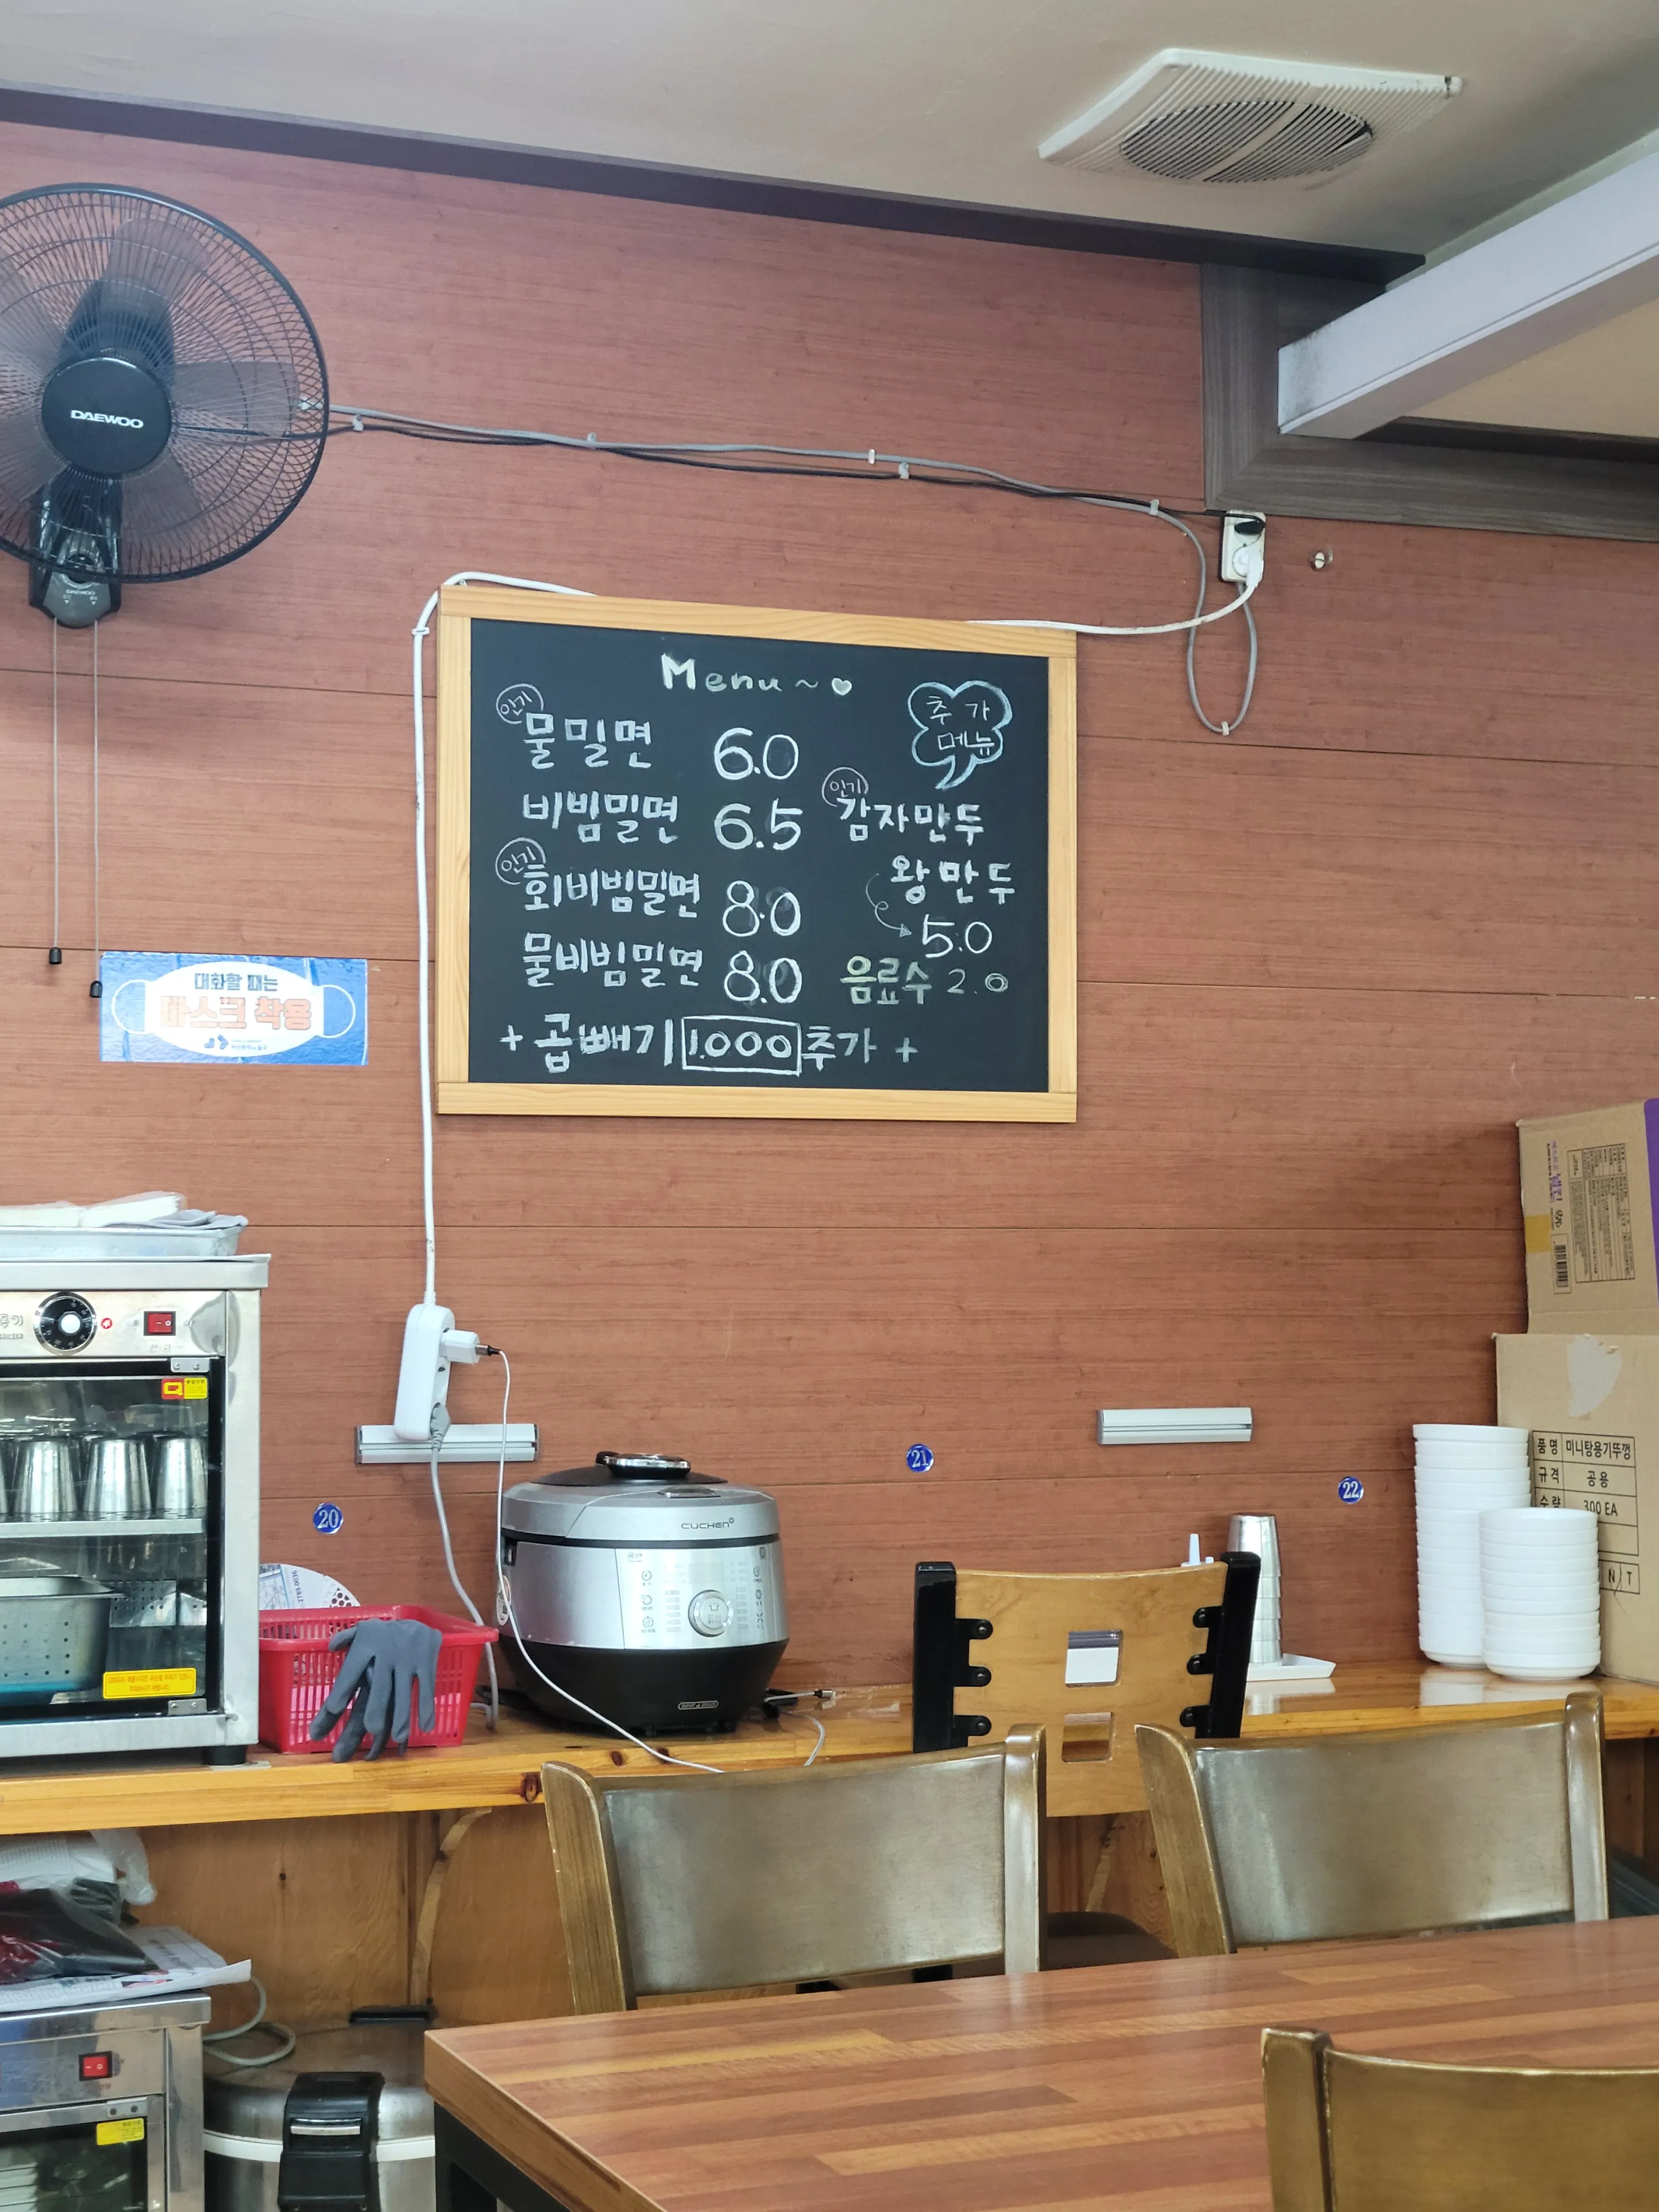 DAEWOO
DAEWOO
Menu ~ ♡
인기
물밀면 6.0
비빔밀면 6.5
인기
회비빔밀면 8.0
물비빔밀면 8.0
+ 곱빼기 1.000 추가 +
추가
메뉴
인기
감자만두
왕만두
5.0
음료수 2.0
대화할 때는
마스크 착용
20
21
22
CUCHEN
품명 미니탕용기뚜껑
규격 공용
수량 300 EA